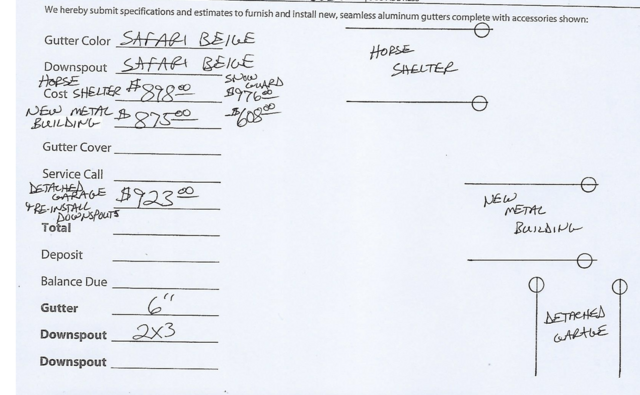 We hereby submit specifications and estimates to furnish and install new, seamless aluminum gutters complete with accessories shown:
Gutter Color SAFARI BEIGE
Downspout SAFARI BEIGE
HORSE SNOW GUARD
Cost SHELTER $898.00 $976.00
NEW METAL BUILDING $875.00 $608.00
Gutter Cover
Service Call
DETACHED GARAGE $923.00
& RE-INSTALL DOWNSPOUTS
Total
Deposit
Balance Due
Gutter 6"
Downspout 2X3
Downspout
HORSE
SHELTER
NEW
METAL
BUILDING
DETACHED
GARAGE